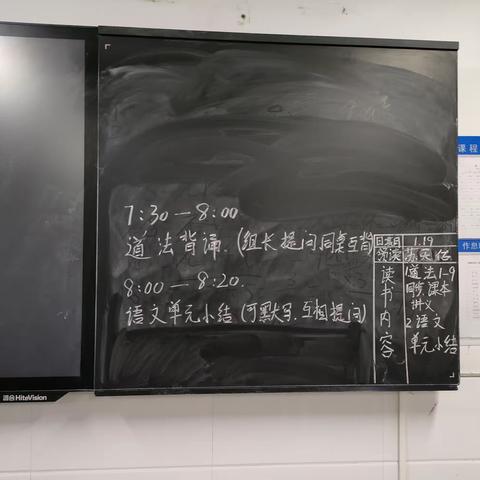 7:30—8:00
道法背诵.(组长提问同桌互背)
8:00—8:20.
语文单元小结(可默写.互相提问)
1.19
领读
读书内容
1道法1-9
课本
讲义
2语文
单元小结
鸿合HiteVision
课程
作息